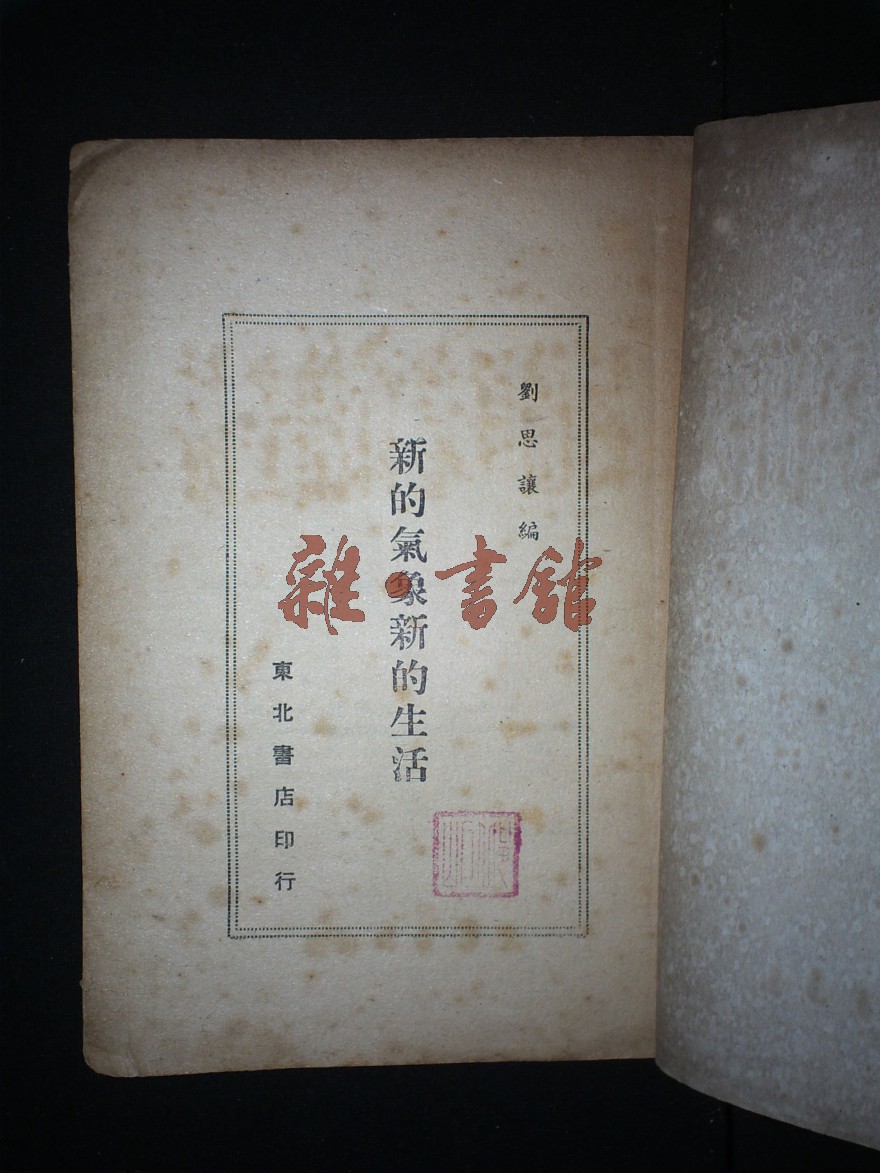 劉思讓編
新的氣象新的生活
東北書店印行
雜·書館